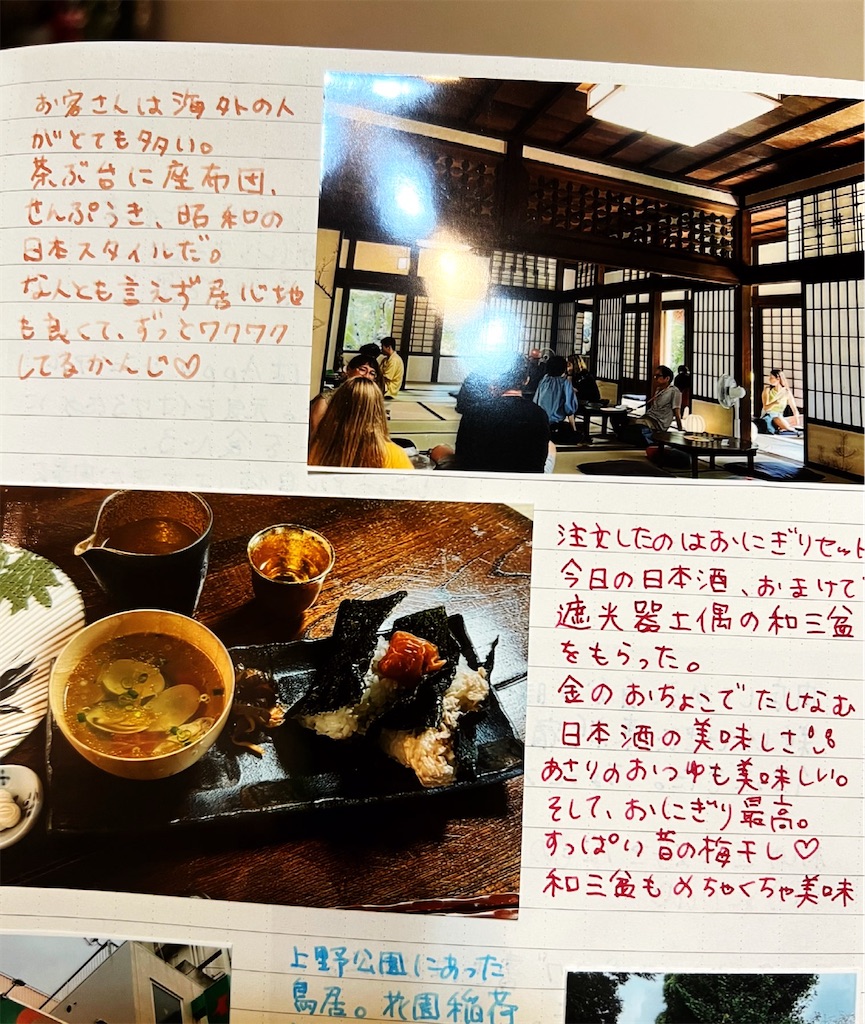 お客さんは海外の人
がとても多い。
茶ぶ台に座布団、
せんぷうき、昭和の
日本スタイルだ。
なんとも言えず居心地
も良くて、ずっとワクワク
してるかんじ♡
注文したのはおにぎりセット
今日の日本酒、おまけで
遮光器土偶の和三盆
をもらった。
金のおちょこでたしなむ
日本酒の美味しさ
あさりのおつゆも美味しい。
そして、おにぎり最高。
すっぱい昔の梅干し♡
和三盆もめちゃくちゃ美味
上野公園にあった
鳥居。花園稲荷